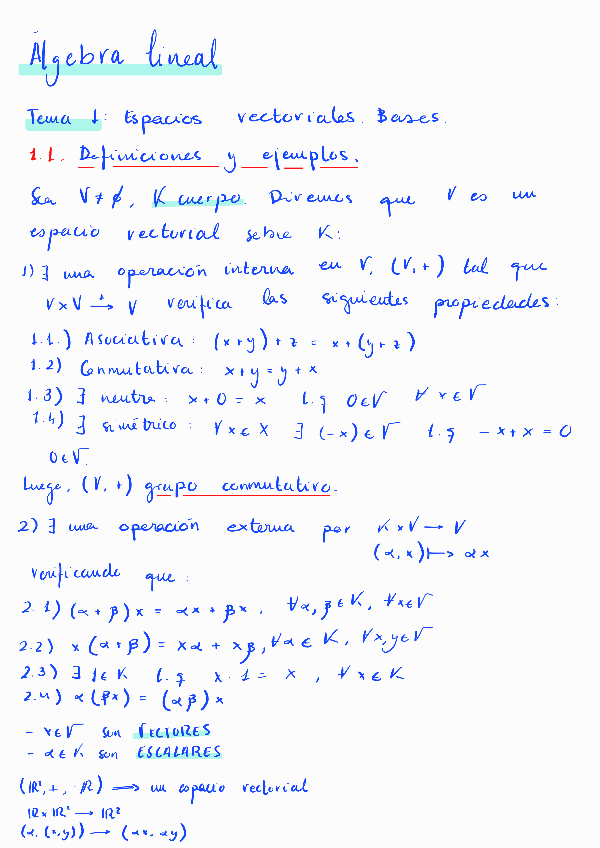 Álgebra lineal
Tema 1: Espacios vectoriales. Bases.
1.1. Definiciones y ejemplos.
Sea V ≠ ∅, K cuerpo. Diremos que V es un
espacio vectorial sobre K:
1) ∃ una operación interna en V, (V, +) tal que
V x V →⁺ V verifica las siguientes propiedades:
1.1.) Asociativa: (x+y) + z = x + (y + z)
1.2) Conmutativa: x+y = y + x
1.3) ∃ neutro: x + 0 = x t.q 0 ∈ V ∀ x ∈ V
1.4) ∃ simétrico: ∀ x ∈ X ∃ (-x) ∈ V t.q - x + x = 0
0 ∈ V.
Luego, (V, +) grupo conmutativo.
2) ∃ una operación externa por K x V → V
(α, x) ↦ αx
verificando que:
2.1) (α + β) x = αx + βx, ∀α, β ∈ K, ∀x ∈ V
2.2) x (α + β) = xα + xβ, ∀α ∈ K, ∀x, y ∈ V
2.3) ∃ 1 ∈ K t.q x · 1 = x, ∀ x ∈ K
2.4) α (βx) = (αβ) x
- x ∈ V son VECTORES
- α ∈ K son ESCALARES
(ℝ², +, ·ℝ) ⟹ un espacio vectorial
ℝ x ℝ² → ℝ²
(α, (x, y)) → (αx, αy)